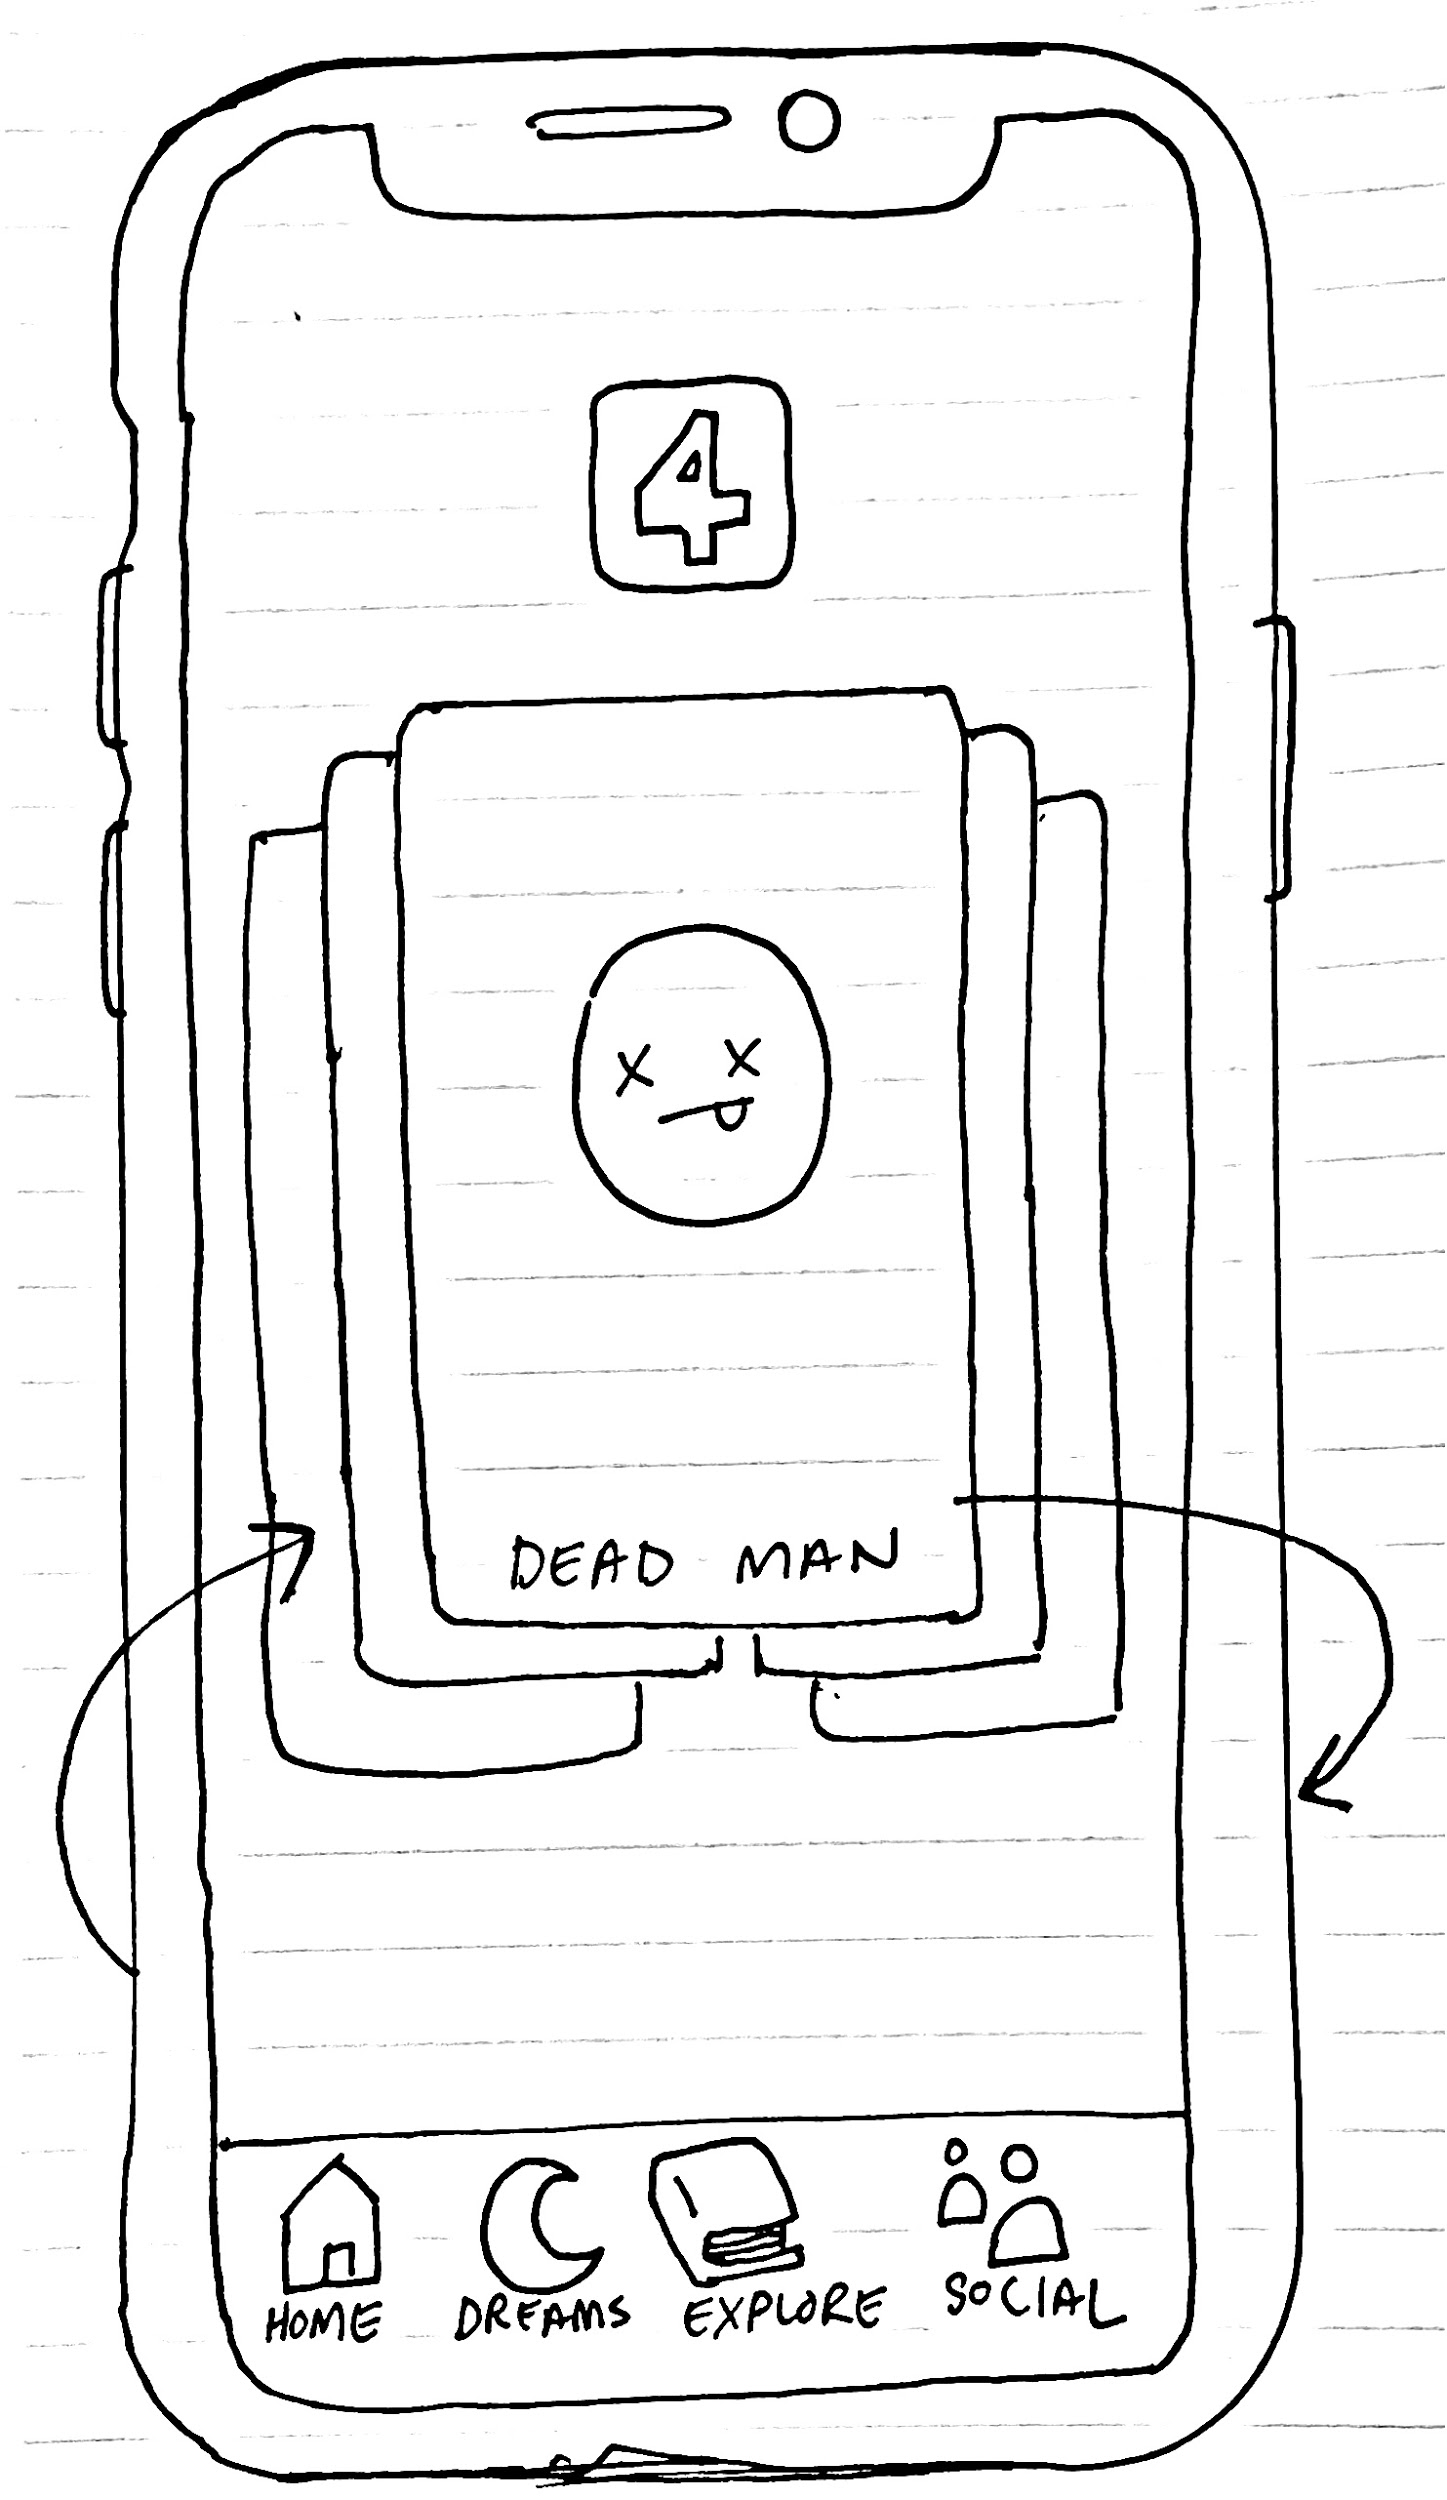 4
DEAD MAN
HOME DREAMS EXPLORE SOCIAL